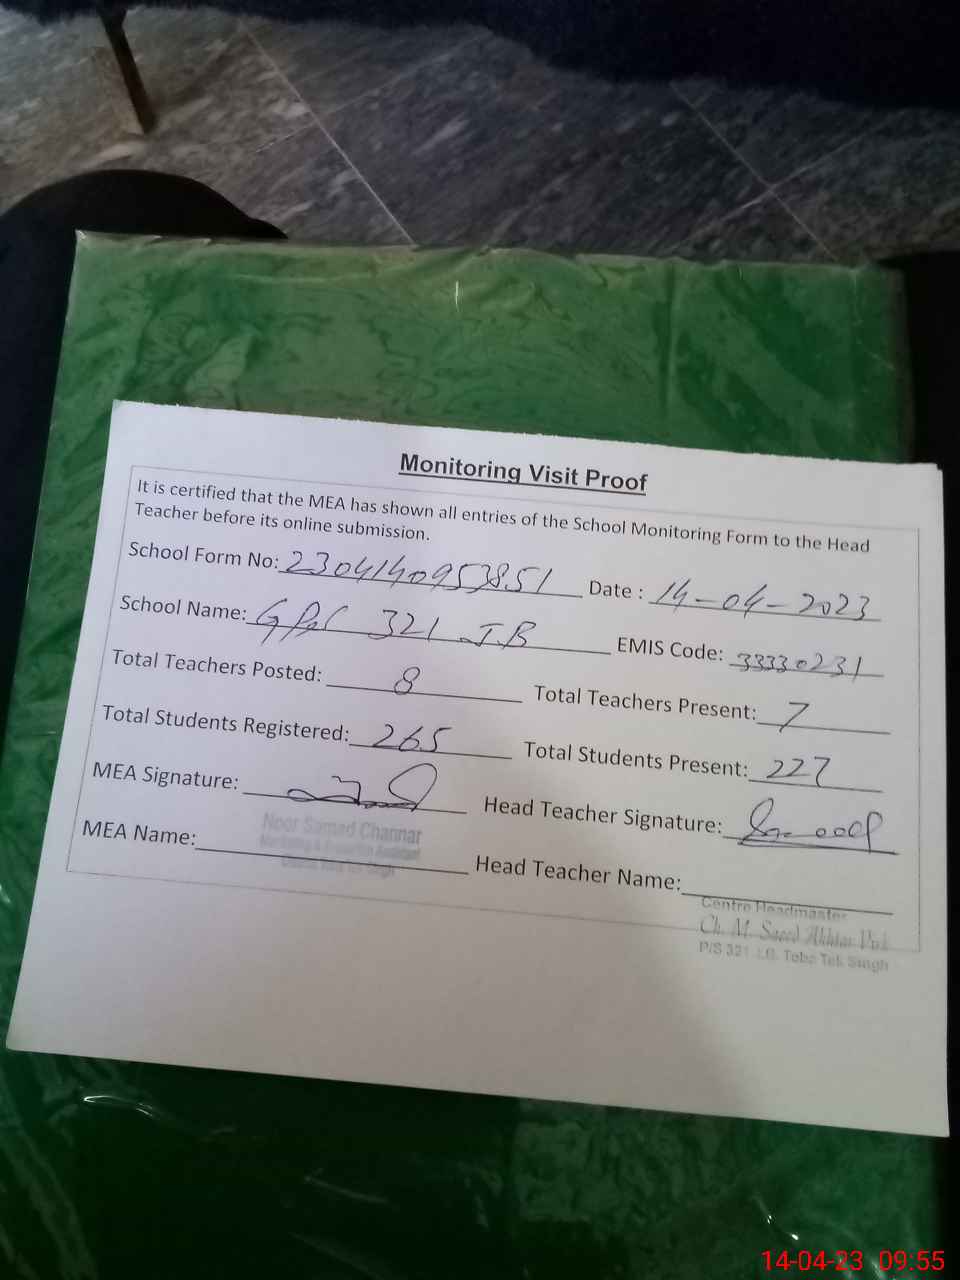 Monitoring Visit Proof
It is certified that the MEA has shown all entries of the School Monitoring Form to the Head
Teacher before its online submission.
School Form No: 2304140953851 Date : 14-04-2023
School Name: GPS 321 J.B EMIS Code: 33330231
Total Teachers Posted: 8 Total Teachers Present: 7
Total Students Registered: 265 Total Students Present: 227
MEA Signature: Head Teacher Signature:
Noor Samad Channar
Monitoring & Evaluation Assistant
MEA Name: Head Teacher Name:
Centre Headmaster
Ch. M. Saeed Akhtar Virk
P/S 321 J.B. Toba Tek Singh
14-04-23 09:55